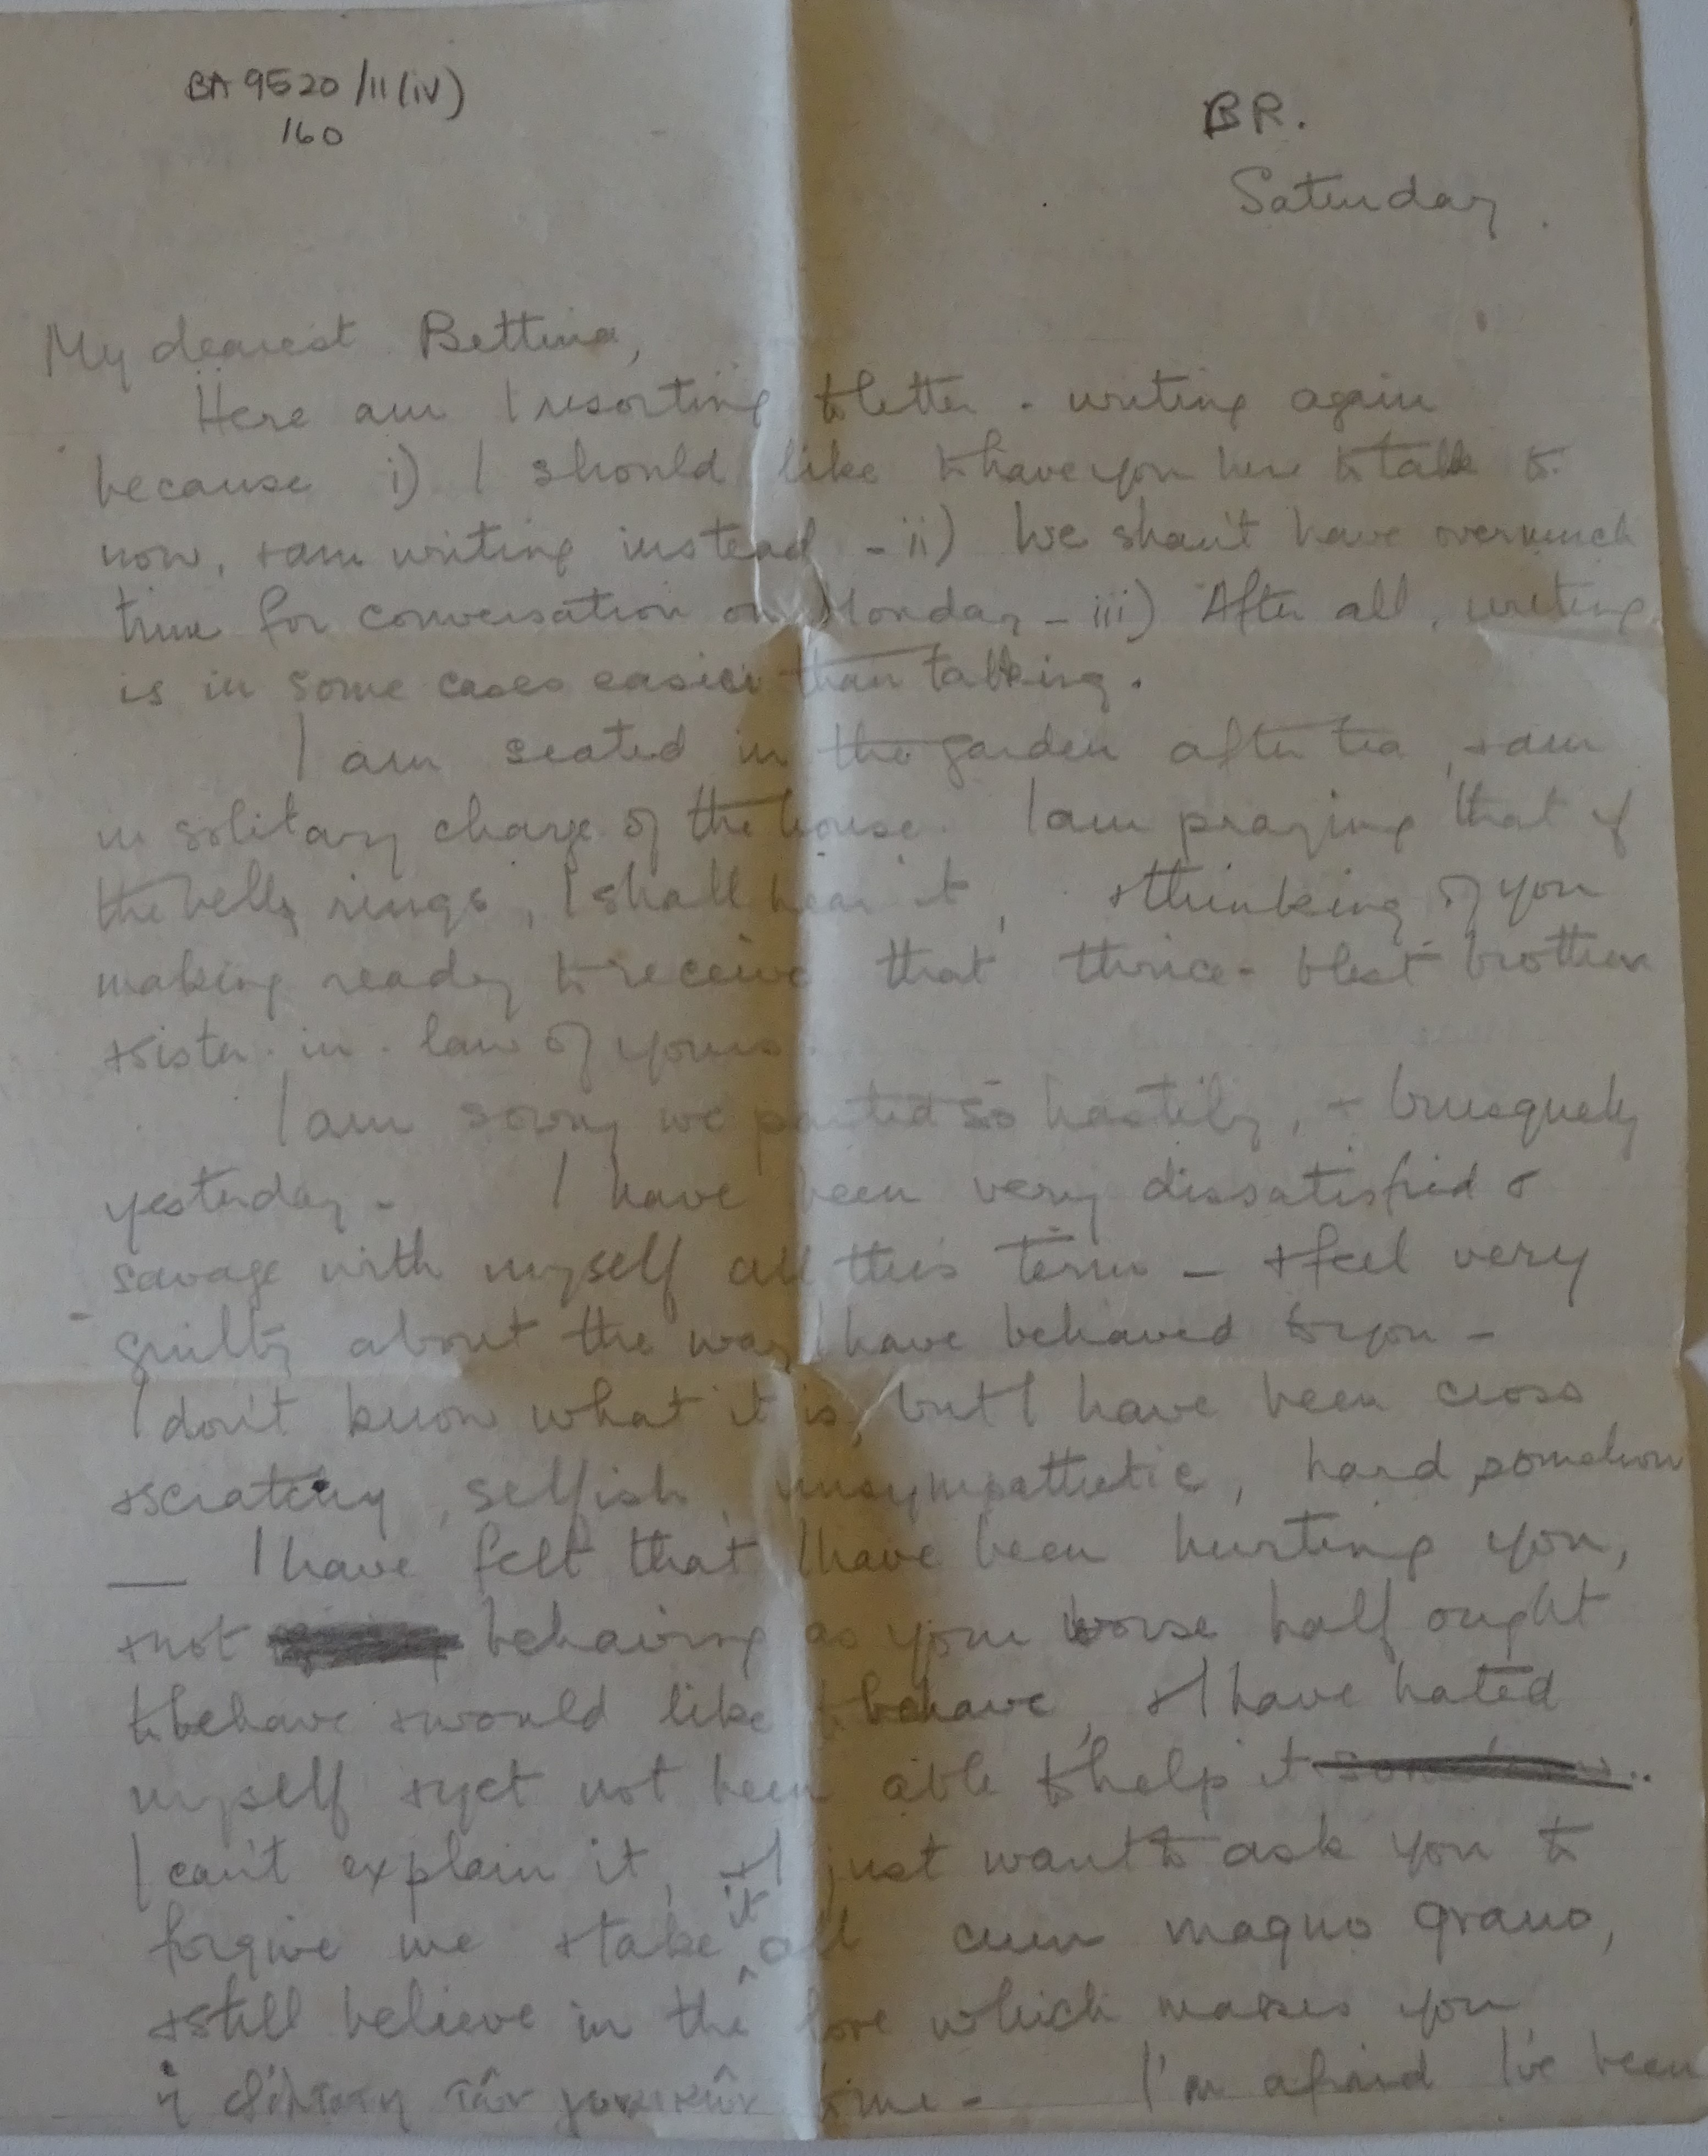 BA 9520/11(iv)
160
BR.
Saturday.
My dearest Bettina,
Here am I resorting to letter-writing again
because i) I should like to have you here to talk to
now, & am writing instead - ii) We shan't have overmuch
time for conversation on Monday - iii) After all, writing
is in some cases easier than talking.
I am seated in the garden after tea, & am
in solitary charge of the house. I am praying that if
the bells rings, I shall hear it, & thinking of you
making ready to receive that thrice-blest brother
& sister-in-law of yours.
I am sorry we parted so hastily, & brusquely
yesterday - I have been very dissatisfied &
savage with myself all this term - & feel very
guilty about the way I have behaved to you -
I don't know what it is, but I have been cross
& scratchy, selfish, unsympathetic, hard somehow
— I have felt that I have been hurting you,
& not behaving as your worse half ought
to behave & would like to behave, & I have hated
myself & yet not been able to help it
I can't explain it, & I just want to ask you to
forgive me & take it all cum magno grano,
& still believe in the love which makes you
ἡ φιλτάτη τῶν γυναικῶν to me - I'm afraid I've been